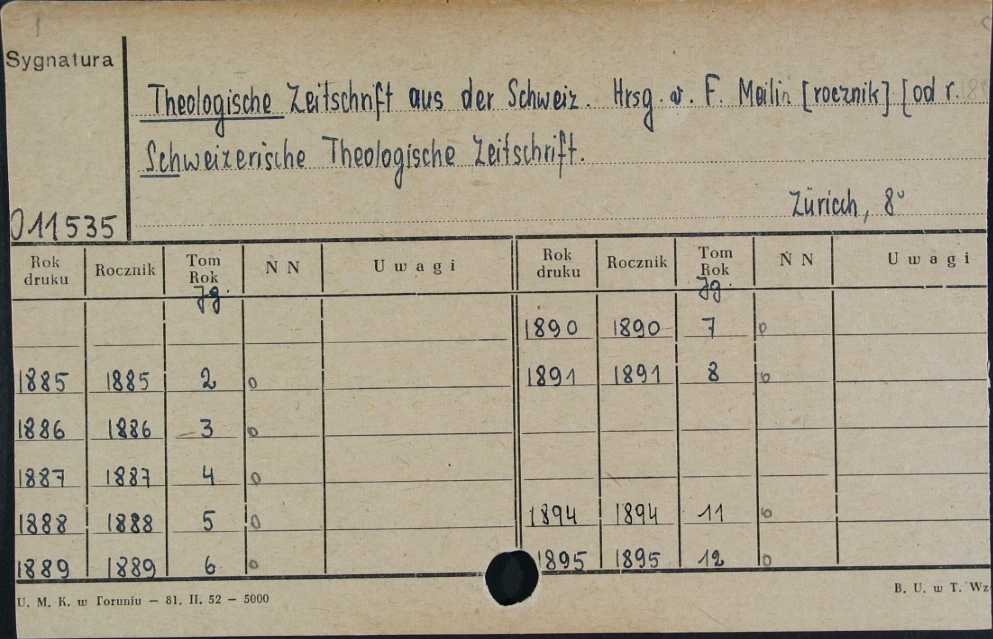 Sygnatura
Theologische Zeitschrift aus der Schweiz. Hrsg. v. F. Meilin [rocznik] [od r.
Schweizerische Theologische Zeitschrift.
Zürich, 8°
011535
Rok druku Rocznik Tom Rok N N Uwagi Rok druku Rocznik Tom Rok N N Uwagi
Jg. Jg.
1890 1890 7 0
1885 1885 2 0 1891 1891 8 0
1886 1886 3 0
1887 1887 4 0
1888 1888 5 0 1894 1894 11 0
1889 1889 6 0 1895 1895 12 0
U. M. K. w Toruniu – 81. II. 52 – 5000
B. U. w T. Wz